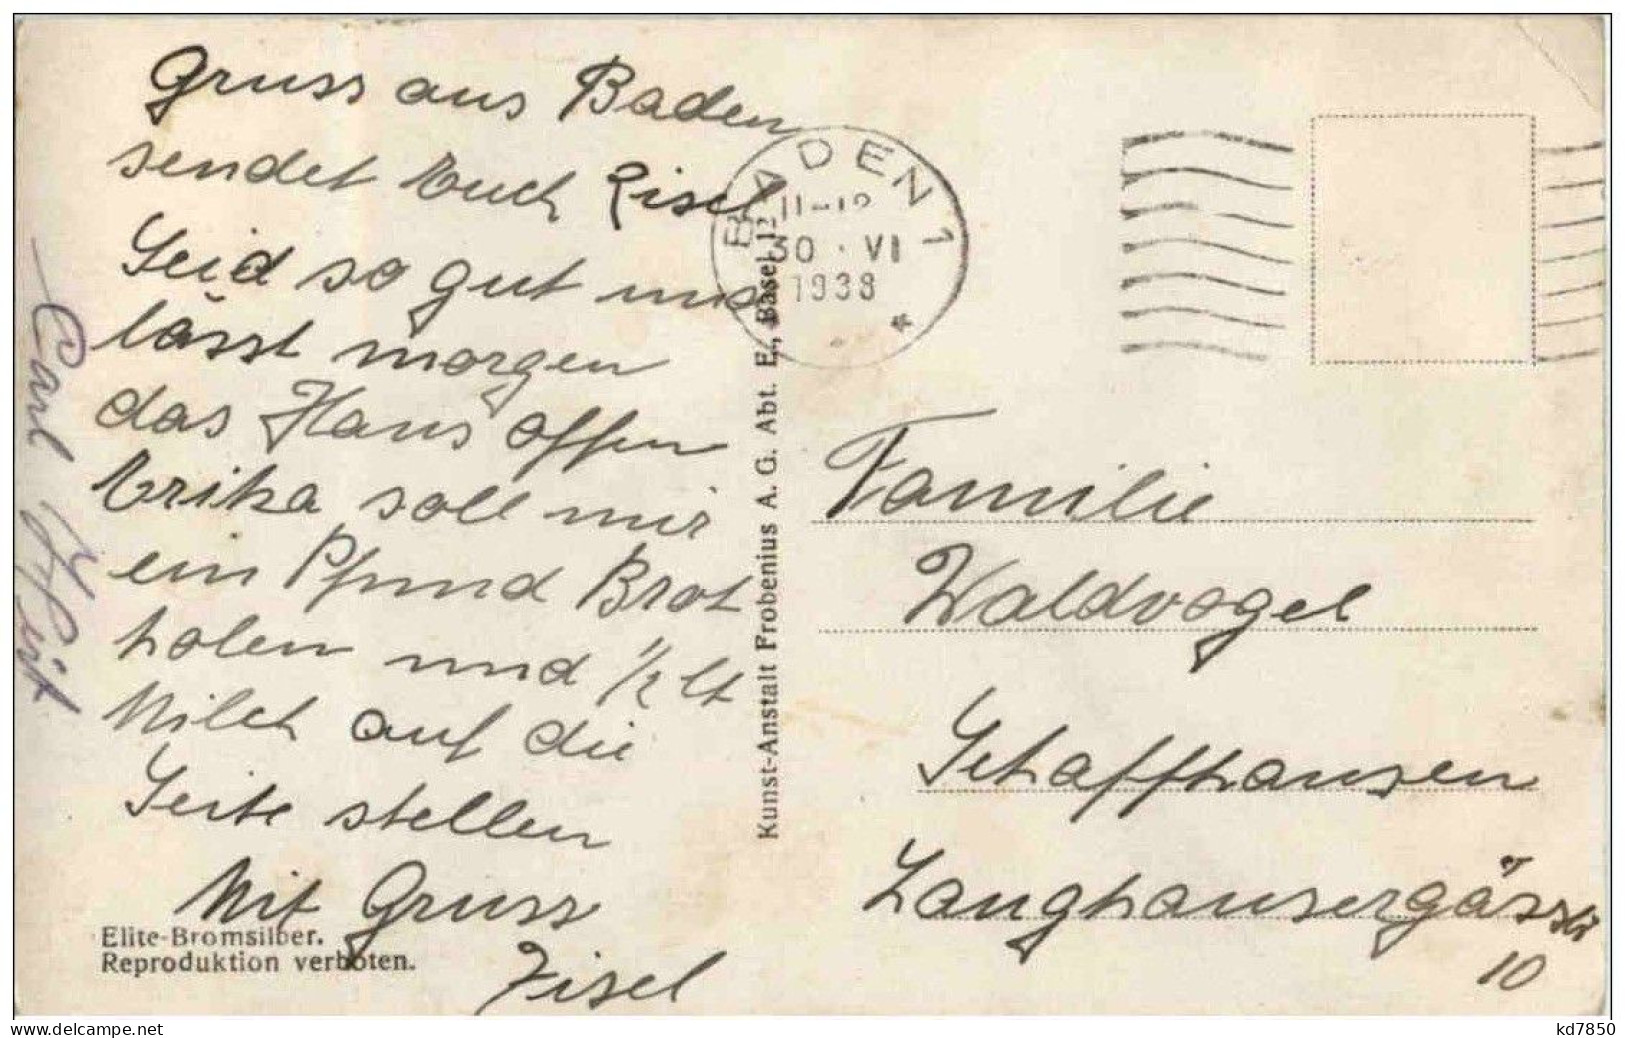 Gruss aus Baden
sendet Euch Lisel
Seid so gut und
lässt morgen
das Haus offen
Erika soll mir
ein Pfund Brot
holen und 1/2 lt
Milch auf die
Seite stellen
Mit Gruss
Lisel
Carl
Elite-Bromsilber.
Reproduktion verboten.
Kunst-Anstalt Frobenius A. G. Abt. E., Basel 12
BADEN 1
11-12
30. VI
1938
*
Familie
Waldvogel
Schaffhausen
Langhansergässli
10
www.delcampe.net
kd7850